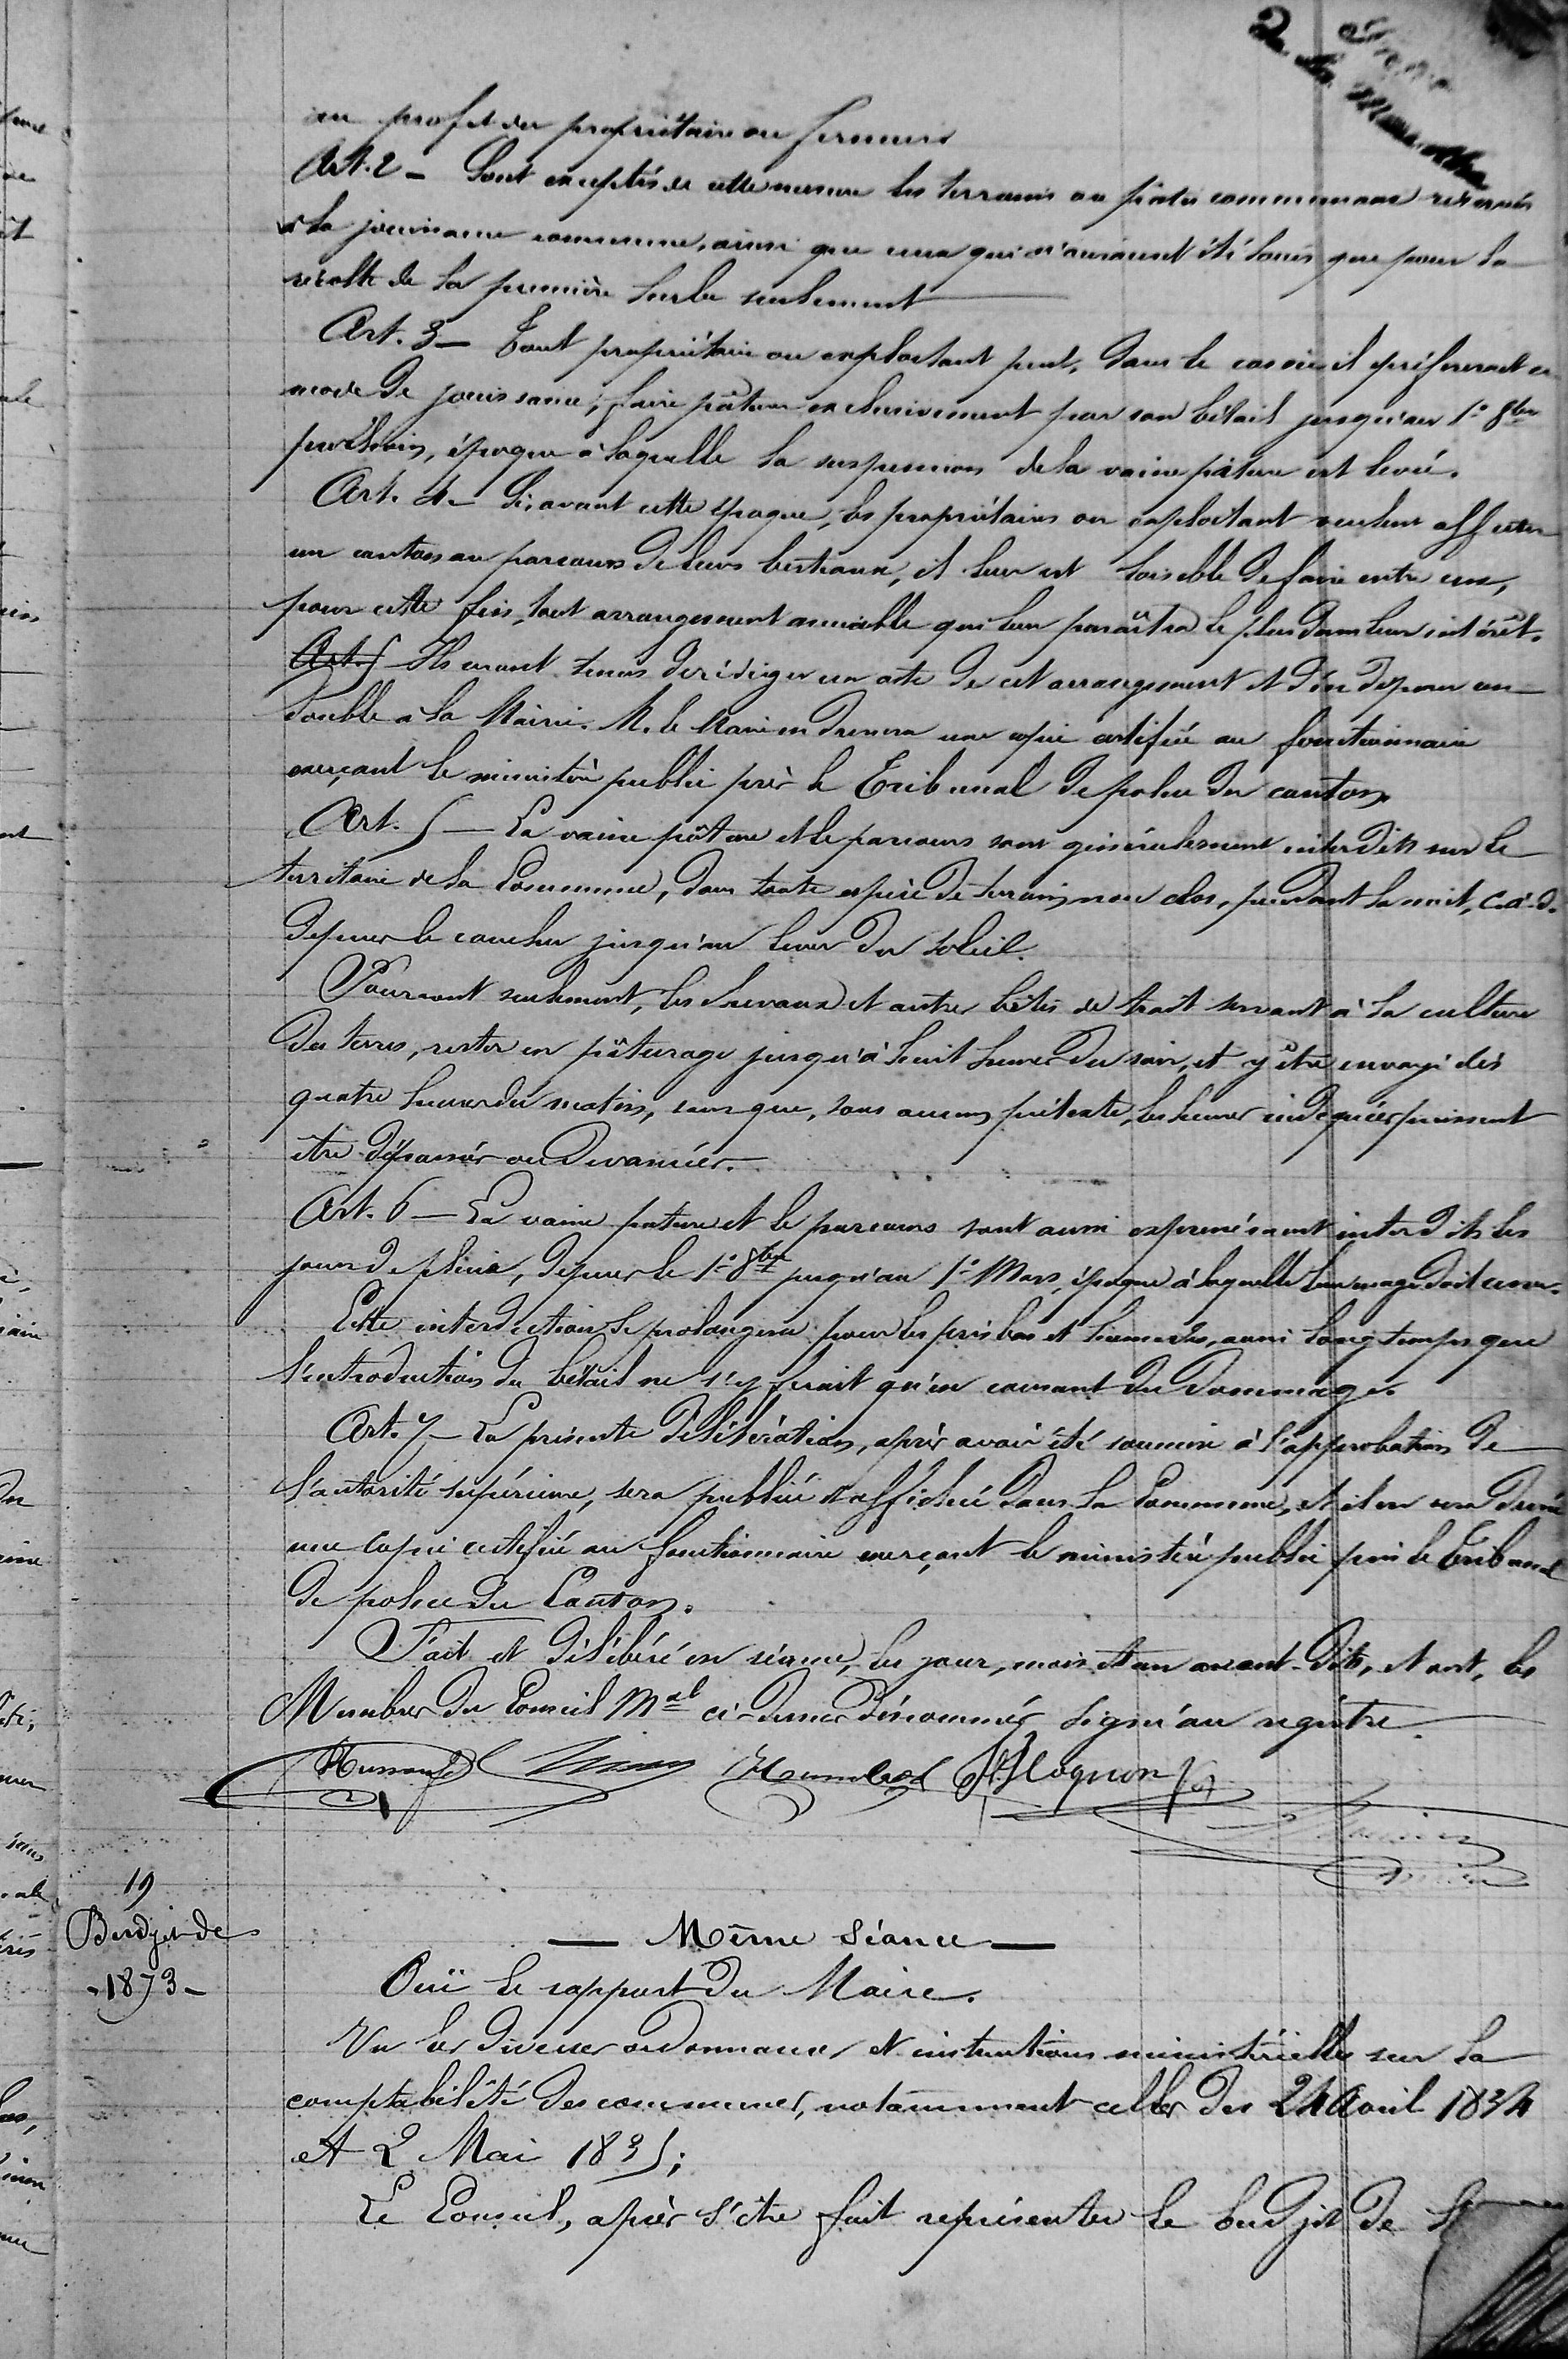 au profit du propriétaire ou fermier
Art. 2 – Sont exceptés de cette mesure les terrains ou pâtis communaux réservés
à la jouissance commune, ainsi que ceux qui n'auraient été loués que pour la
récolte de la première herbe seulement
Art. 3 – Tout propriétaire ou exploitant peut, dans le cas où il préférerait ce
mode de jouissance, faire pâturer exclusivement par son bétail jusqu'au 1er 8bre
prochain, époque à laquelle la suspension de la vaine pâture est levée.
Art. 4 – Si, avant cette époque, les propriétaires ou exploitant veulent affecter
un canton au parcours de leurs bestiaux, il leur est loisible de faire entre eux,
pour cette fin, tout arrangement amiable qui leur paraîtra le plus dans leur intérêt.
Art. 5 Ils seront tenus de rédiger un acte de cet arrangement et d'en déposer un
double à la Mairie. M. le Maire en donnera une copie certifiée au fonctionnaire
exerçant le ministère public près le Tribunal de police du canton.
Art. 5 – La vaine pâture et le parcours sont généralement interdits sur le
territoire de la Commune, dans toute espèce de terrains non clos, pendant la nuit, c.à.d.
depuis le coucher jusqu'au lever du soleil.
Pourront seulement, les chevaux et autres bêtes de trait servant à la culture
des terres, rester en pâturage jusqu'à huit heures du soir, et y être envoyé dès
quatre heures du matin, sans que, sous aucun prétexte, les heures indiquées puissent
être dépassées ou devancées.
Art. 6 – La vaine pature et le parcours sont aussi expressément interdits les
jours de pluie, depuis le 1er 8bre jusqu'au 1er Mars, époque à laquelle leur usage doit cesser.
Cette interdiction se prolongera pour les prés bas et humides, aussi longtemps que
l'introduction du bétail ne s'y ferait qu'en causant du dommage.
Art. 7 – La présente délibération, après avoir été soumise à l'approbation de
l'autorité supérieure, sera publiée et affichée dans la Commune, et il en sera donné
une copie certifiée au fonctionnaire exerçant le ministère public près le Tribunal
de police du Canton.
Fait et délibéré en séance, les jour, mois et an avant-dits, et ont, les
Membres du Conseil Mal ci-dessus dénommés signé au registre.
Humbert
19
Budjet de
-1873-
— Même Séance —
Ouï le rapport du Maire.
Vu les diverses ordonnances et instructions ministérielles sur la
comptabilité des communes, notamment celles des 24 Avril 1834
et 2 Mai 1835;
Le Conseil, après s'être fait représenter le budjet de